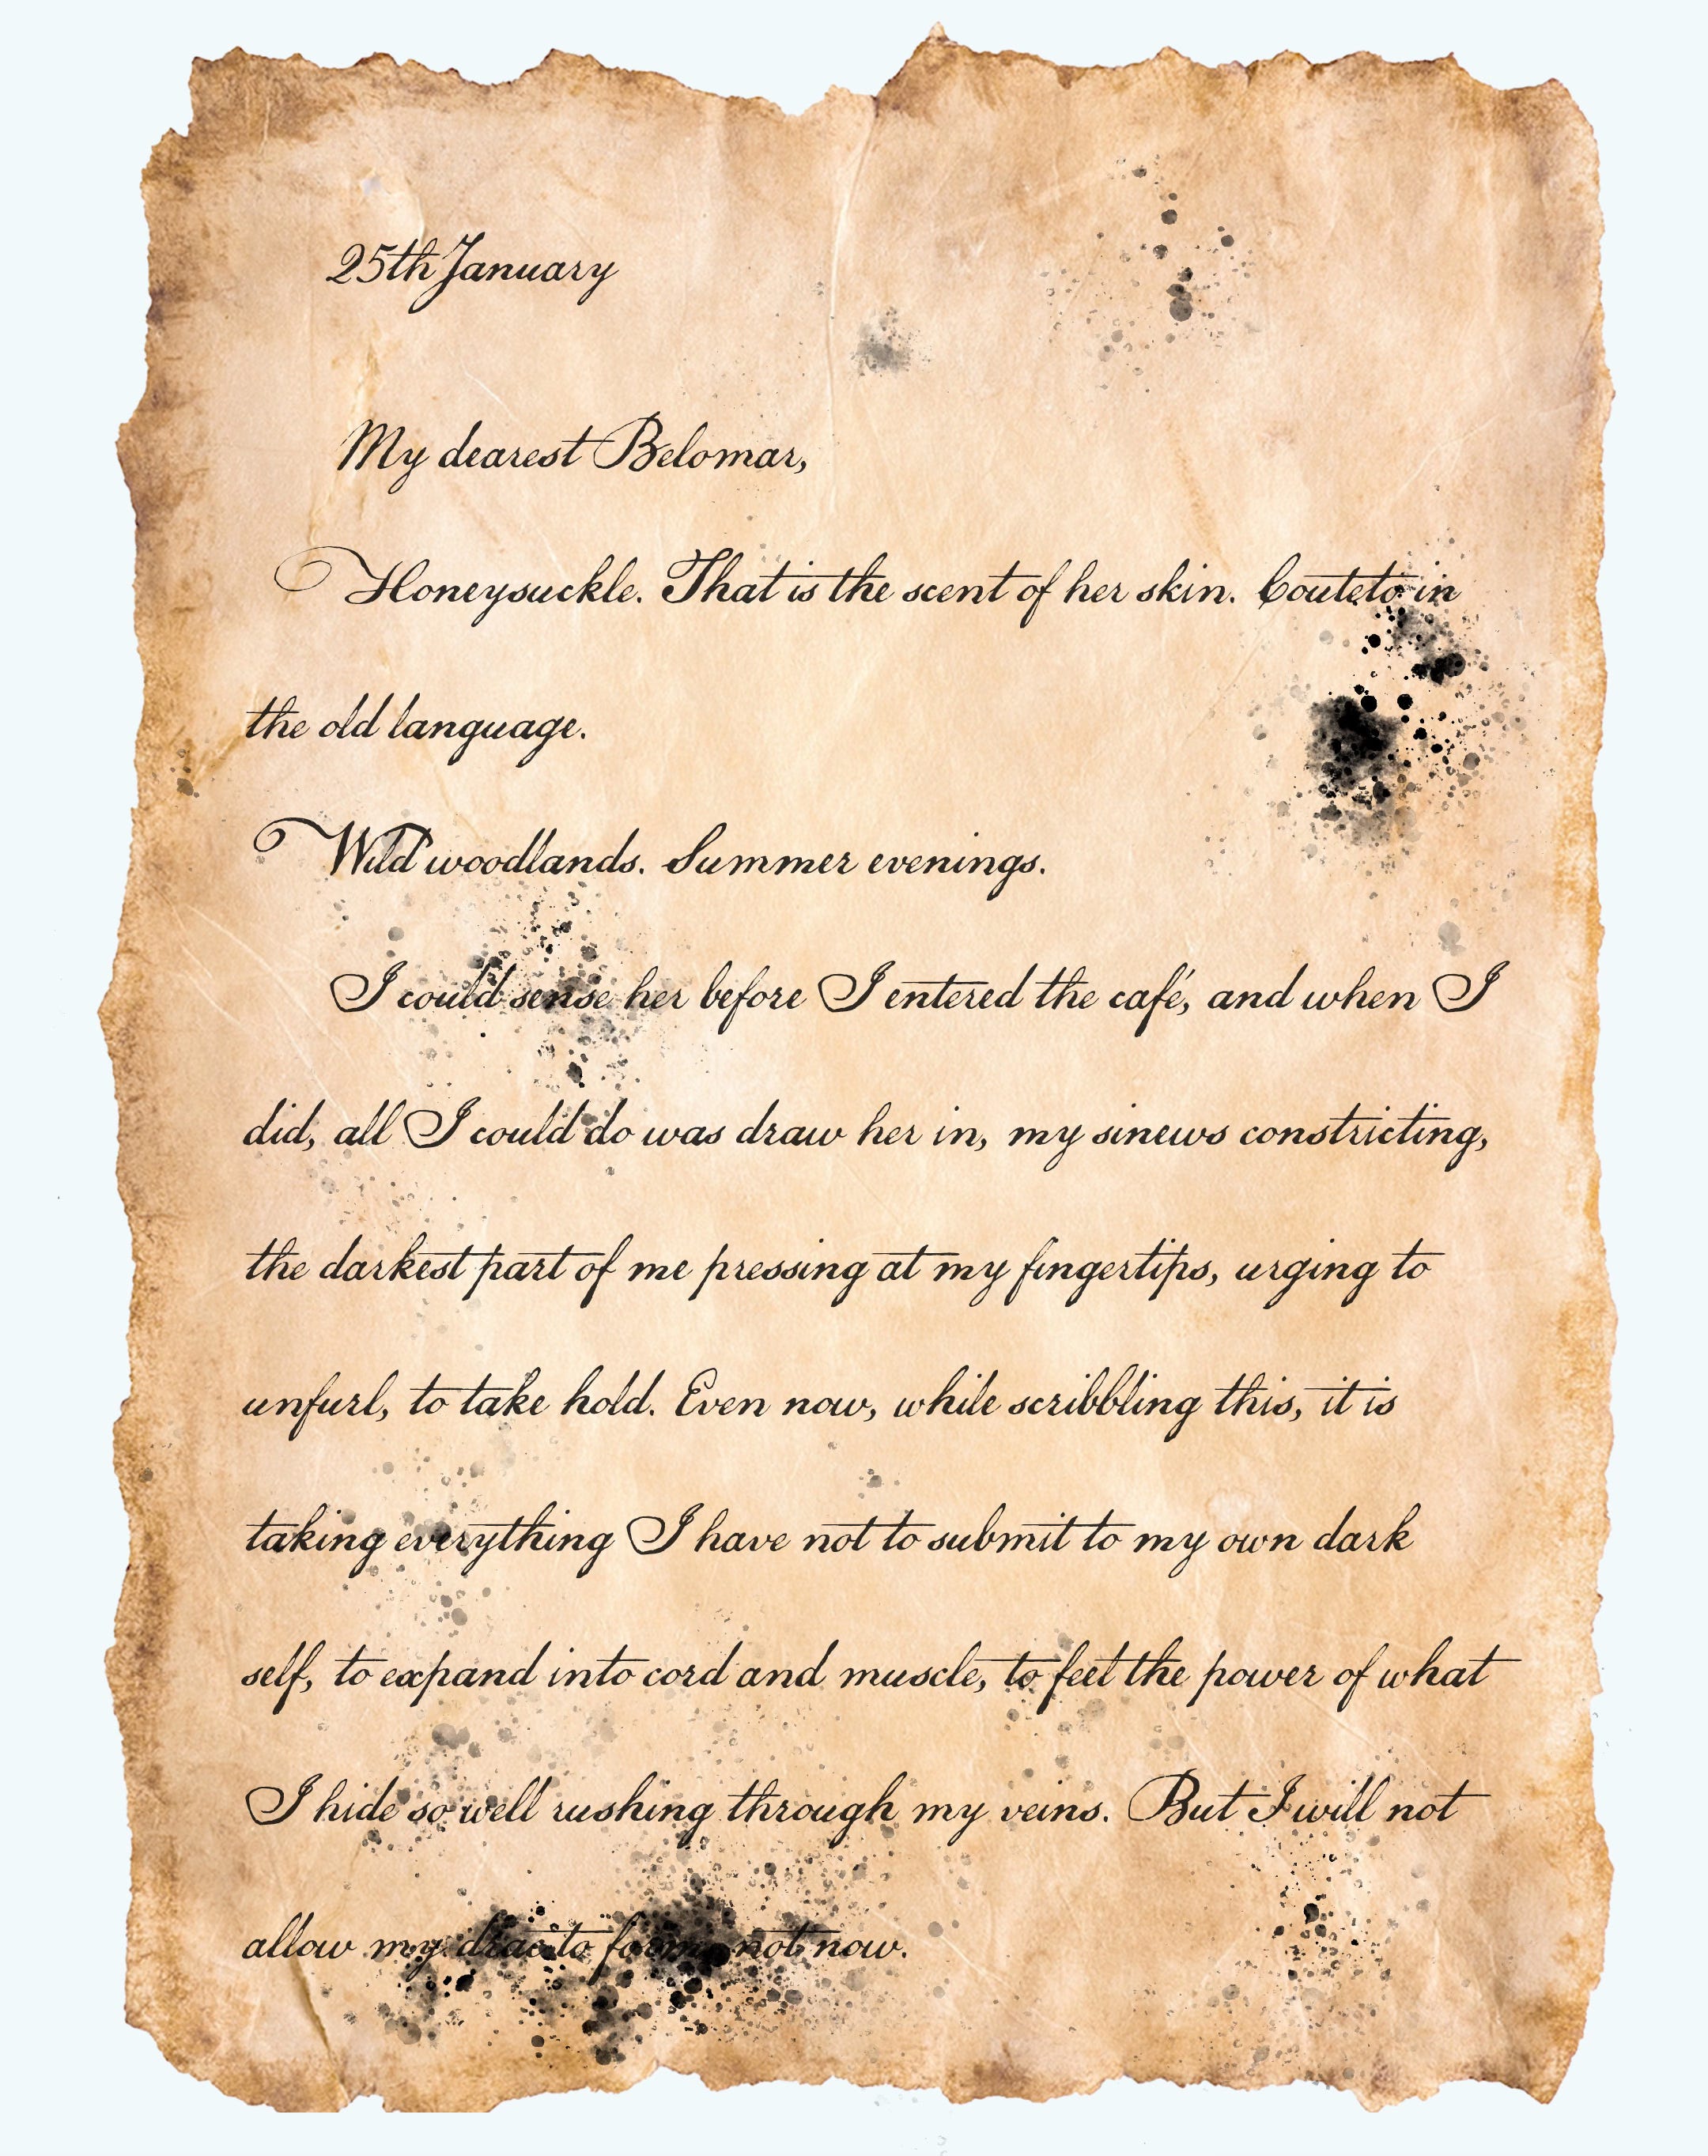 25th January
My dearest Belomar,
Honeysuckle. That is the scent of her skin. Couteto in
the old language.
Wild woodlands. Summer evenings.
I could sense her before I entered the café, and when I
did, all I could do was draw her in, my sinews constricting,
the darkest part of me pressing at my fingertips, urging to
unfurl, to take hold. Even now, while scribbling this, it is
taking everything I have not to submit to my own dark
self, to expand into cord and muscle, to feel the power of what
I hide so well rushing through my veins. But I will not
allow my not now.